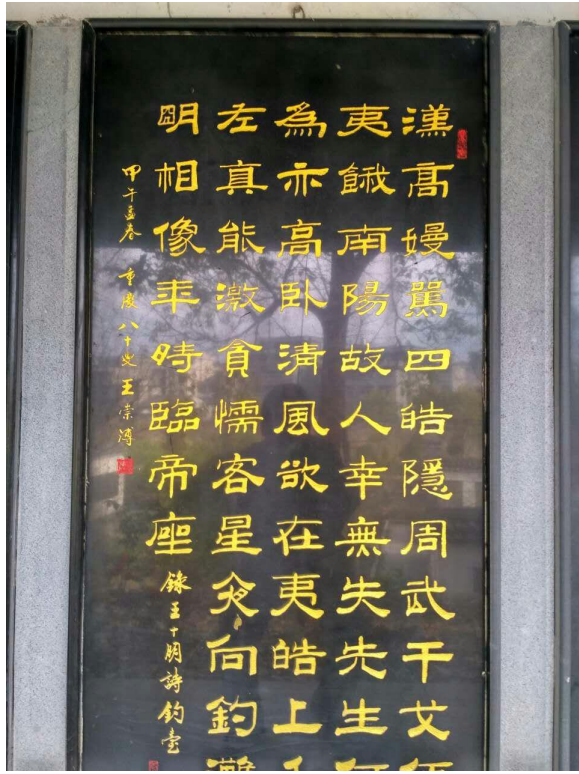 漢高嫚罵四皓隱周武干戈
夷餓南陽故人幸無失先生
爲亦高卧清風欲在夷皓上
左真能激貪懦客星夜向釣灘
明相像年時臨帝座
錄王十朋詩釣臺
甲午孟春 重慶八十叟王崇溥